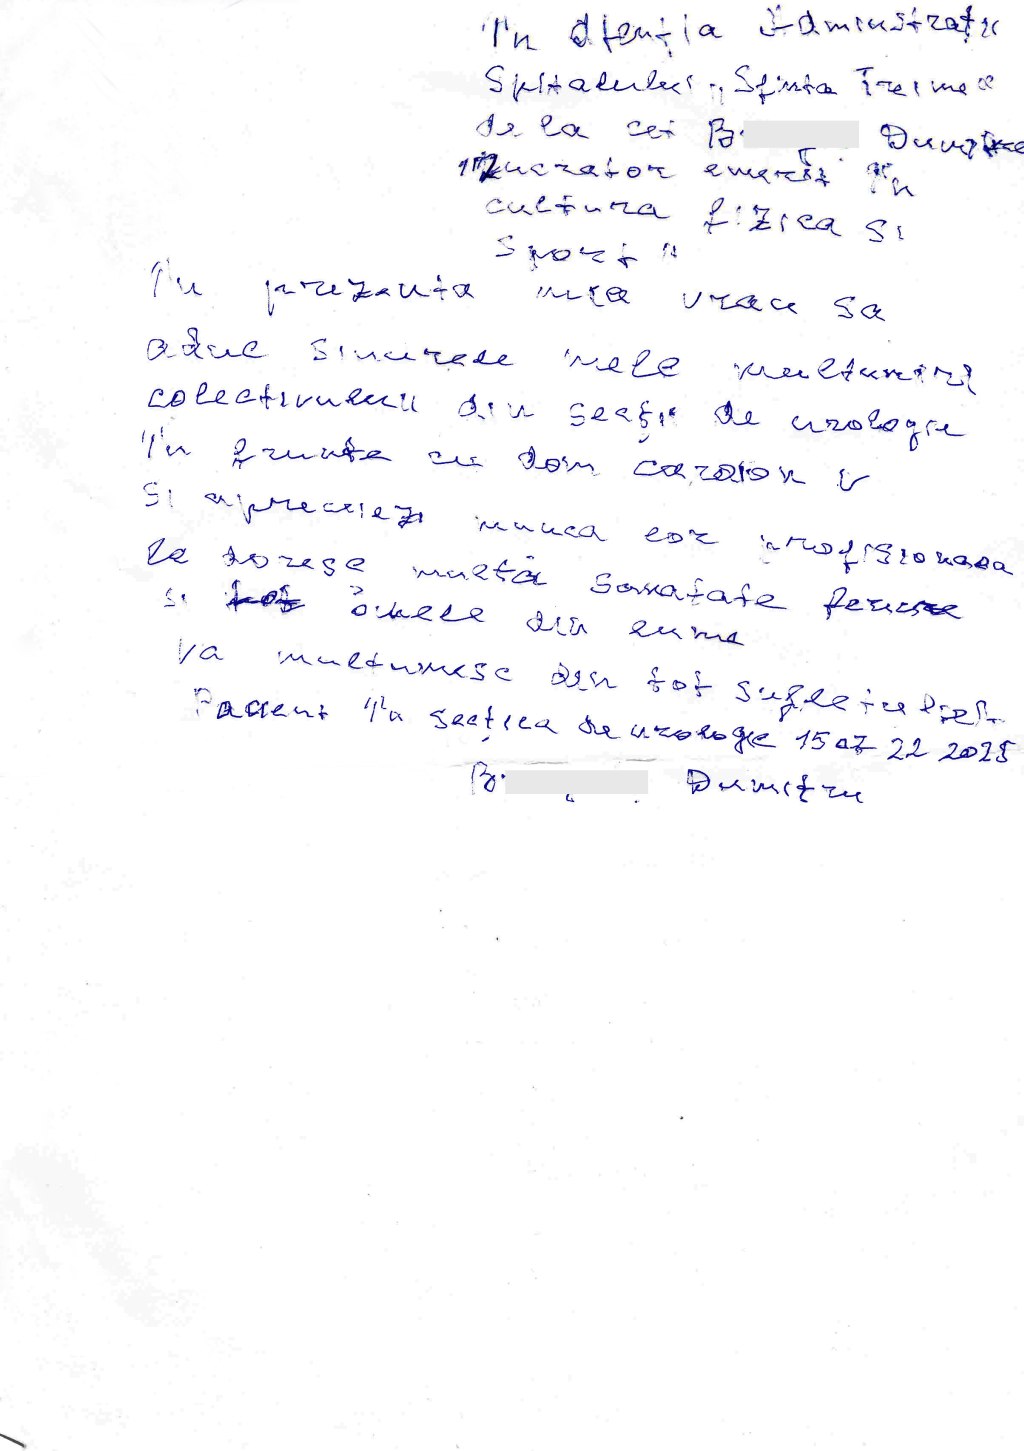 În atenția Administrații
Spitalului „Sfinta Treime"
de la cet B. Dumitru
"lucrator emerit în
cultura fizica si
sport"
În prezenta mea vreau sa
aduc sincerele mele multumiri
colectivului din secții de urologie
în frunte cu dom Caraion V
si apreciez munca lor profisionala
le doresc multă sanatate fericire
si zilele din lume
Va multumesc din tot sufletul
Pacient în secția de urologie 15 07 22 2025
B. Dumitru